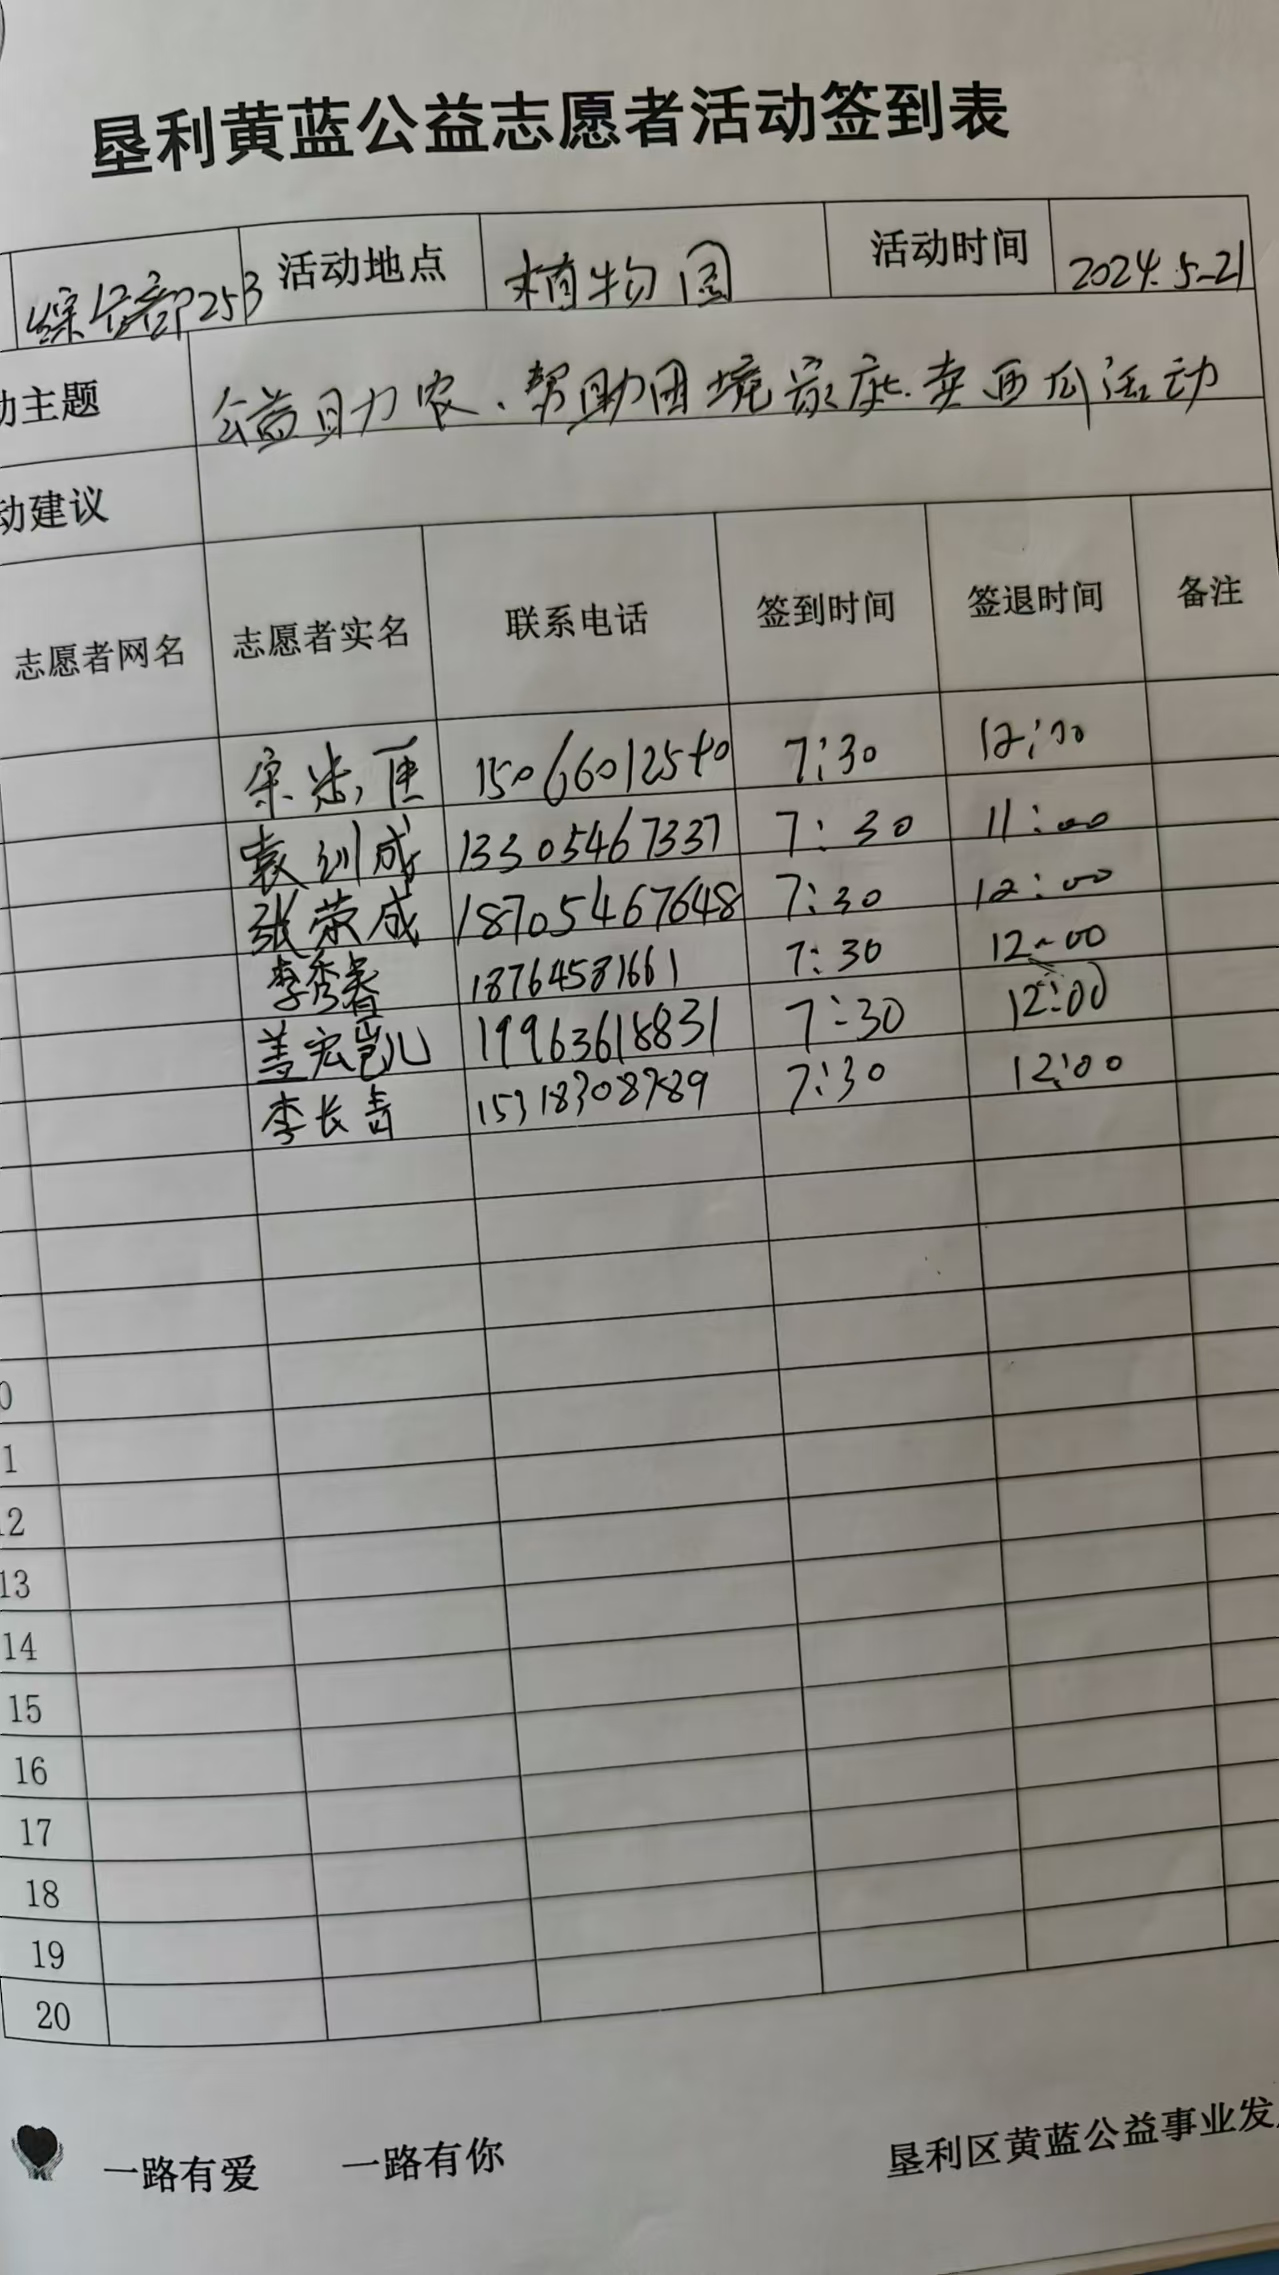 垦利黄蓝公益志愿者活动签到表
综合部253 活动地点 植物园 活动时间 2024.5-21
动主题 公益自力农、帮助困境家庭.卖西瓜活动
动建议
志愿者网名 志愿者实名 联系电话 签到时间 签退时间 备注
宋 15066012540 7:30 12:00
袁训成 13305467337 7:30 11:00
张荣成 18705467648 7:30 12:00
李秀春 18764581661 7:30 12~00
盖宏凯 19963618831 7:30 12:00
李长青 15318308789 7:30 12:00
0
1
12
13
14
15
16
17
18
19
20
一路有爱 一路有你 垦利区黄蓝公益事业发